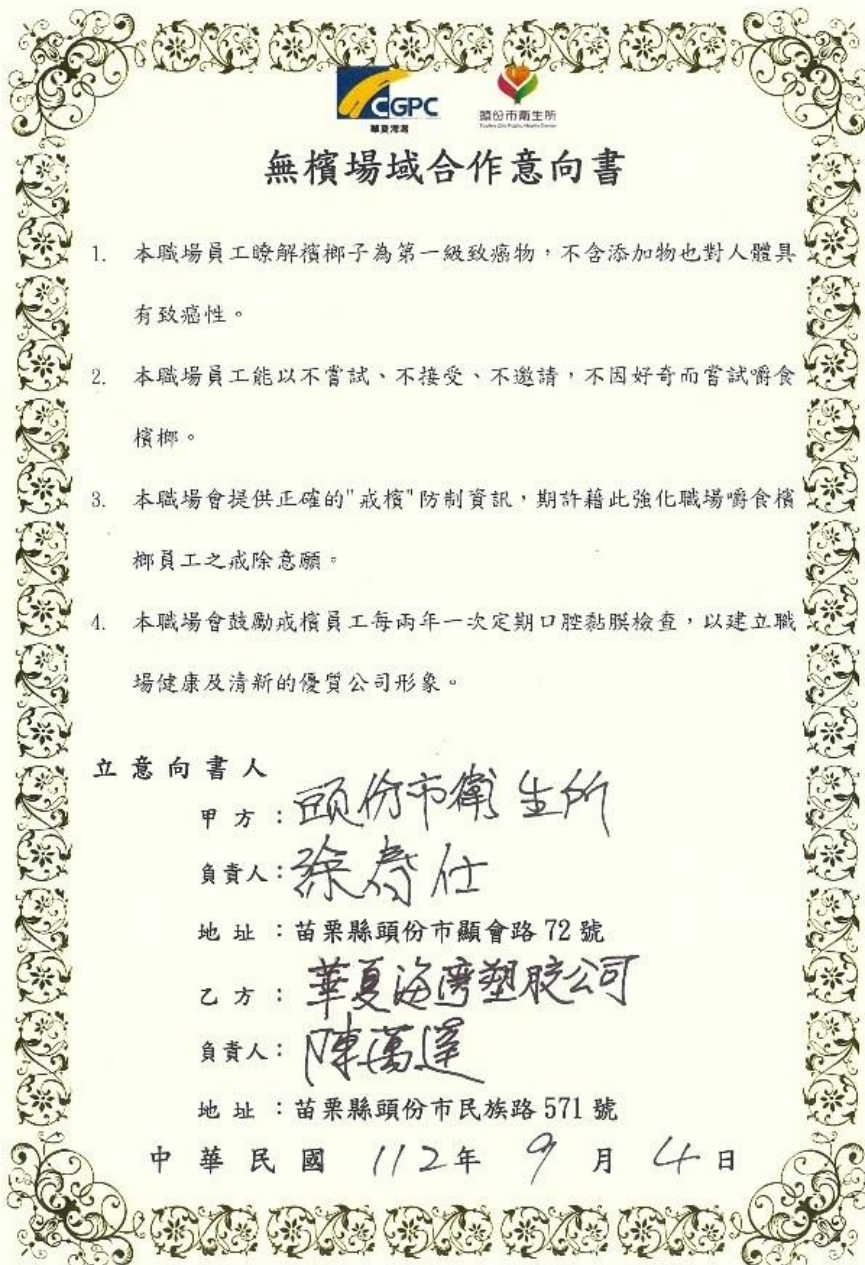 CGPC
華夏海灣
頭份市衛生所
Toufen City Public Health Center
無檳場域合作意向書
1. 本職場員工瞭解檳榔子為第一級致癌物，不含添加物也對人體具
有致癌性。
2. 本職場員工能以不嘗試、不接受、不邀請，不因好奇而嘗試嚼食
檳榔。
3. 本職場會提供正確的"戒檳"防制資訊，期許藉此強化職場嚼食檳
榔員工之戒除意願。
4. 本職場會鼓勵戒檳員工每兩年一次定期口腔黏膜檢查，以建立職
場健康及清新的優質公司形象。
立意向書人
甲方：頭份市衛生所
負責人：徐 仕
地址：苗栗縣頭份市顯會路 72 號
乙方：華夏海灣塑膠公司
負責人：陳萬達
地址：苗栗縣頭份市民族路 571 號
中華民國 112年 9 月 4 日